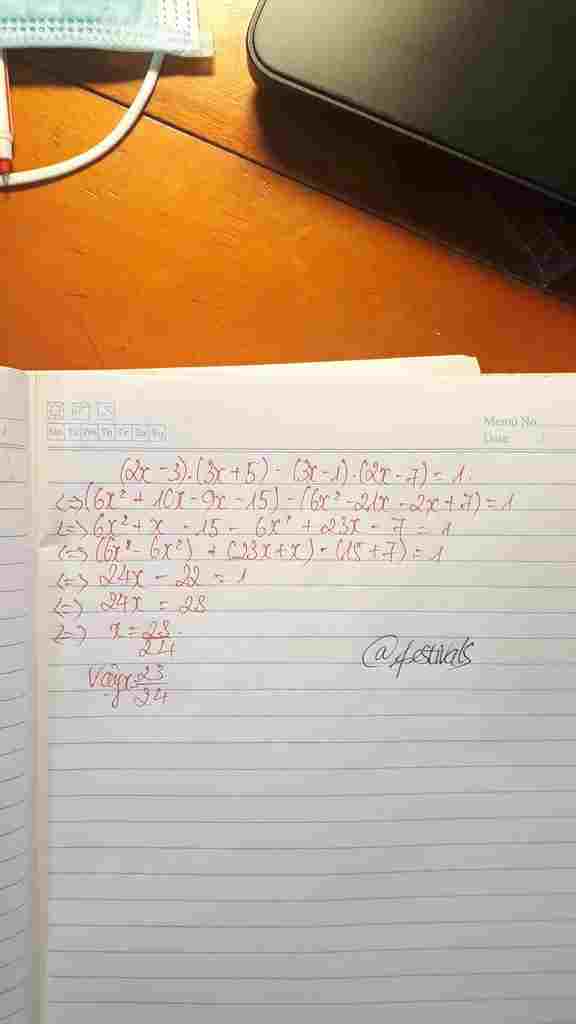 Memo No.
Date / /
Mo Tu We Th Fr Sa Su
(2x - 3).(3x + 5) - (3x - 1).(2x - 7) = 1.
<=> (6x² + 10x - 9x - 15) - (6x² - 21x - 2x + 7) = 1
<=> 6x² + x - 15 - 6x² + 23x - 7 = 1
<=> (6x² - 6x²) + (23x + x) - (15 + 7) = 1
<=> 24x - 22 = 1
<=> 24x = 23
<=> x = 23/24
Vậy x = 23/24
@festivals